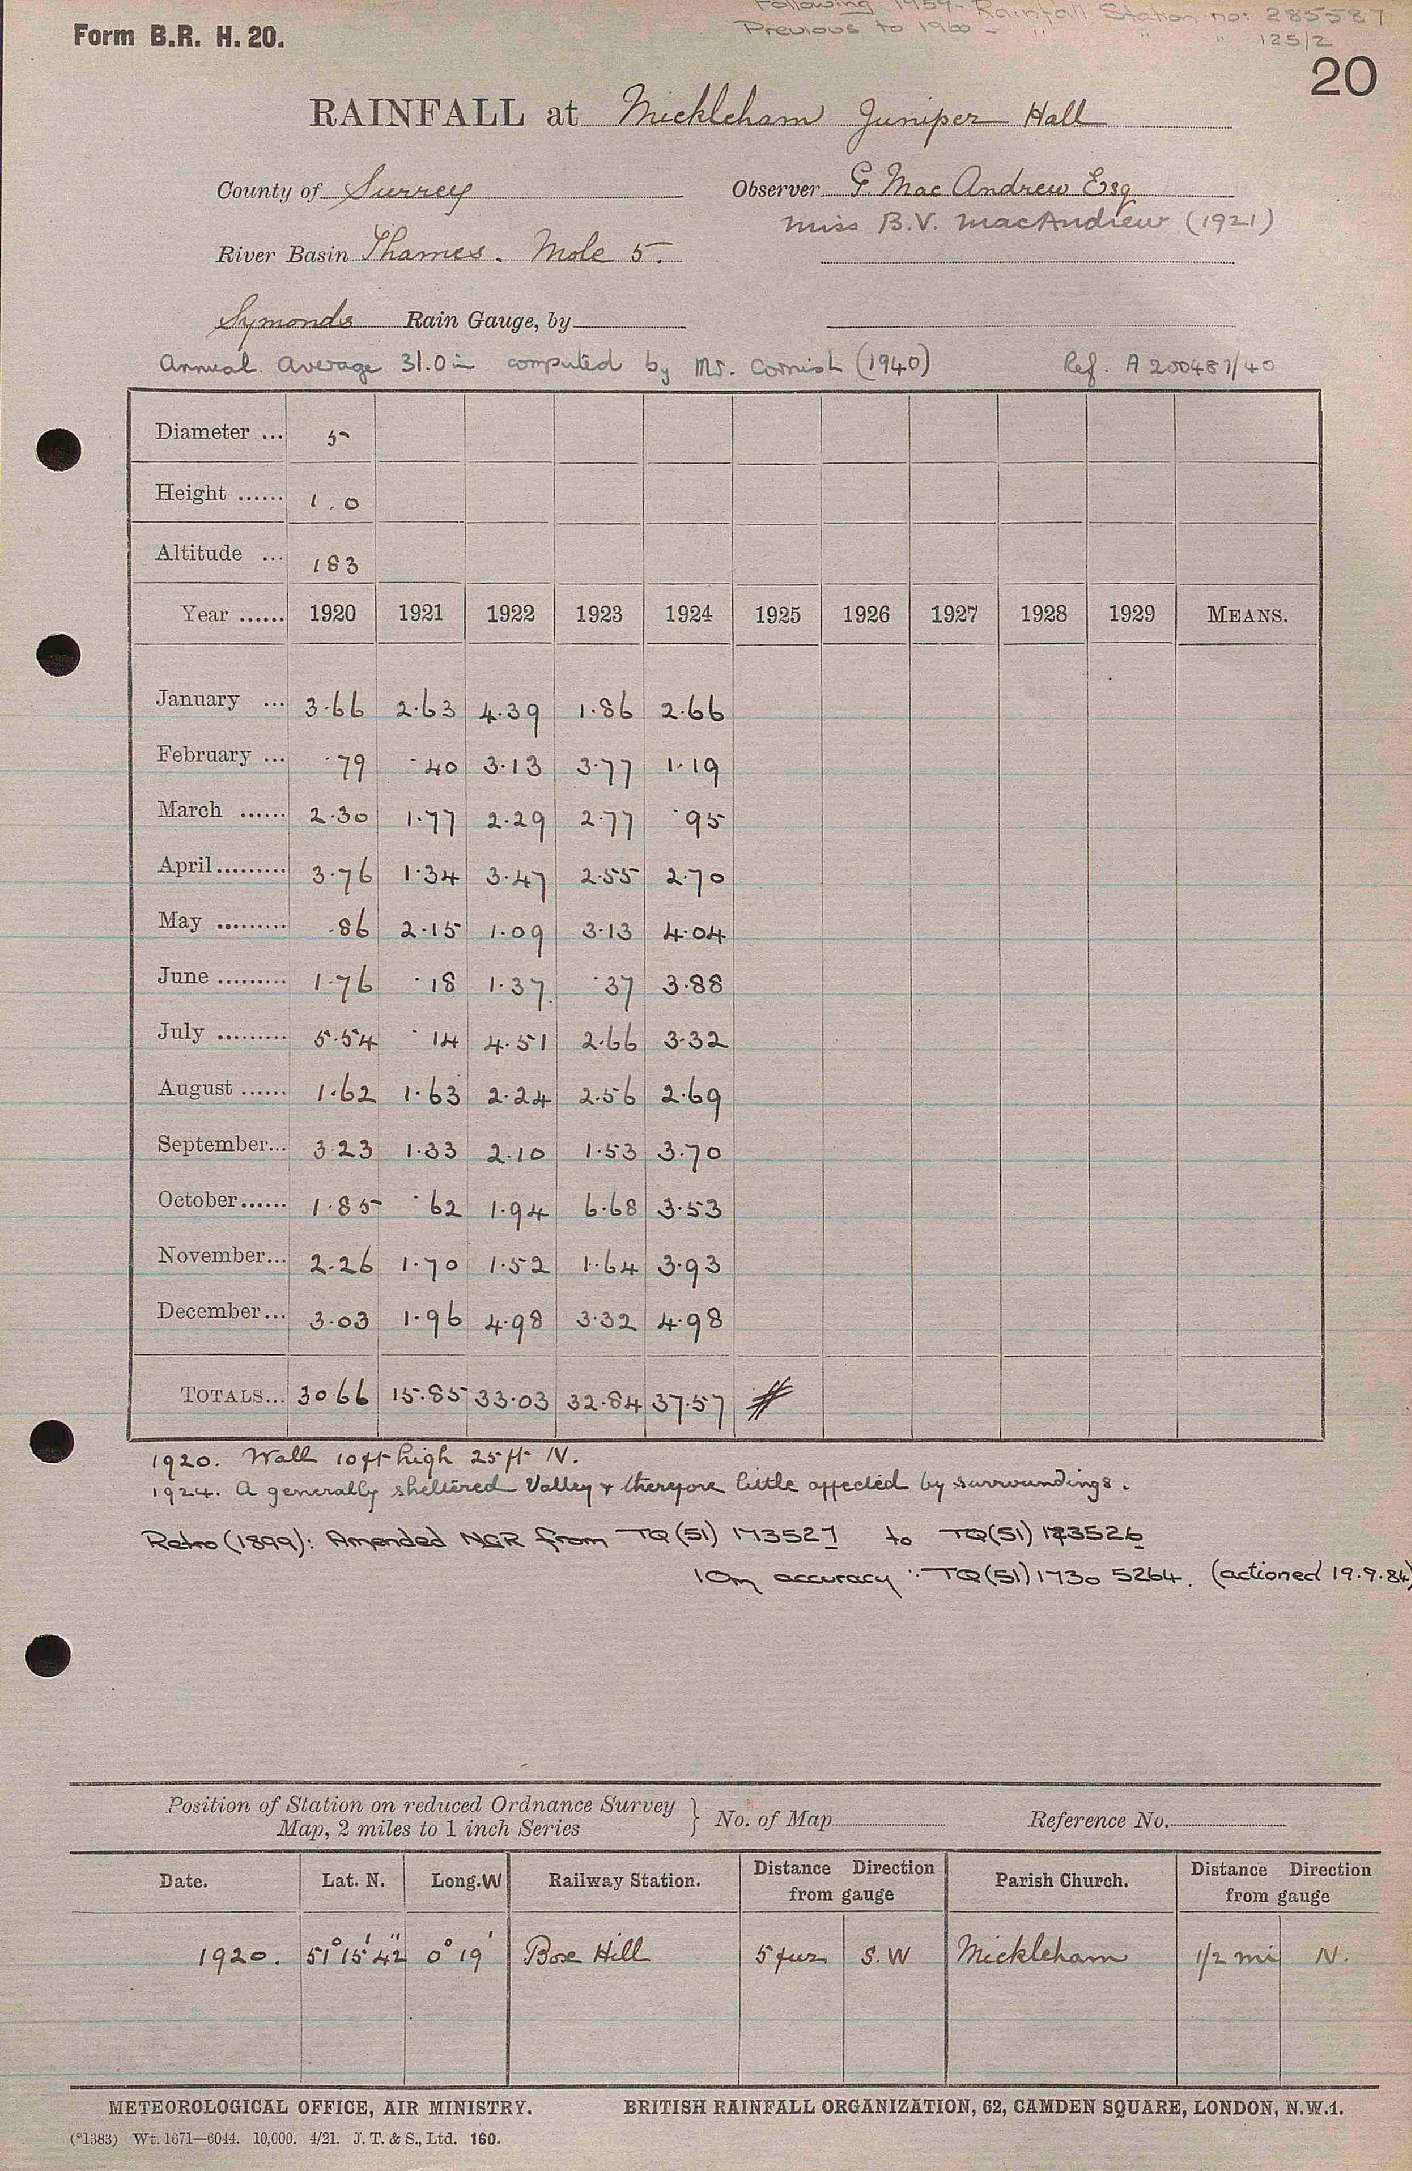 Following 1959 - Rainfall Station no: 285587
Form B.R. H. 20.
Previous to 1960 - " " " 125/2
20
RAINFALL at Mickleham Juniper Hall
County of Surrey Observer G. MacAndrew Esq
Miss B.V. MacAndrew (1921)
River Basin Thames. Mole 5.
Symonds Rain Gauge, by
Annual Average 31.0 in computed by Mr. Cornish (1940) Ref. A 200487/40
Diameter ... 5
Height ...... 1.0
Altitude ... 183
Year ...... 1920 1921 1922 1923 1924 1925 1926 1927 1928 1929 MEANS.
January ... 3.66 2.63 4.39 1.86 2.66
February ... .79 .40 3.13 3.77 1.19
March ...... 2.30 1.77 2.29 2.77 .95
April ......... 3.76 1.34 3.47 2.55 2.70
May ......... .86 2.15 1.09 3.13 4.04
June ......... 1.76 .18 1.37 .37 3.88
July ......... 5.54 .14 4.51 2.66 3.32
August ...... 1.62 1.63 2.24 2.56 2.69
September... 3.23 1.33 2.10 1.53 3.70
October...... 1.85 .62 1.94 6.68 3.53
November... 2.26 1.70 1.52 1.64 3.93
December... 3.03 1.96 4.98 3.32 4.98
TOTALS... 30.66 15.85 33.03 32.84 37.57
1920. Wall 10ft high 25ft N.
1924. A generally sheltered Valley & therefore little affected by surroundings.
Retro (1899): Amended NGR from TQ(51) 173527 to TQ(51) 173526
10m accuracy :- TQ(51) 1730 5264. (actioned 19.9.84)
Position of Station on reduced Ordnance Survey
Map, 2 miles to 1 inch Series } No. of Map Reference No.
Date. Lat. N. Long. W Railway Station. Distance Direction from gauge Parish Church. Distance Direction from gauge
1920. 51° 15' 42" 0° 19' Box Hill 5 fur S.W Mickleham 1/2 mi N.
METEOROLOGICAL OFFICE, AIR MINISTRY. BRITISH RAINFALL ORGANIZATION, 62, CAMDEN SQUARE, LONDON, N.W.1.
(*1383) Wt. 1671—6044. 10,000. 4/21. J. T. & S., Ltd. 160.